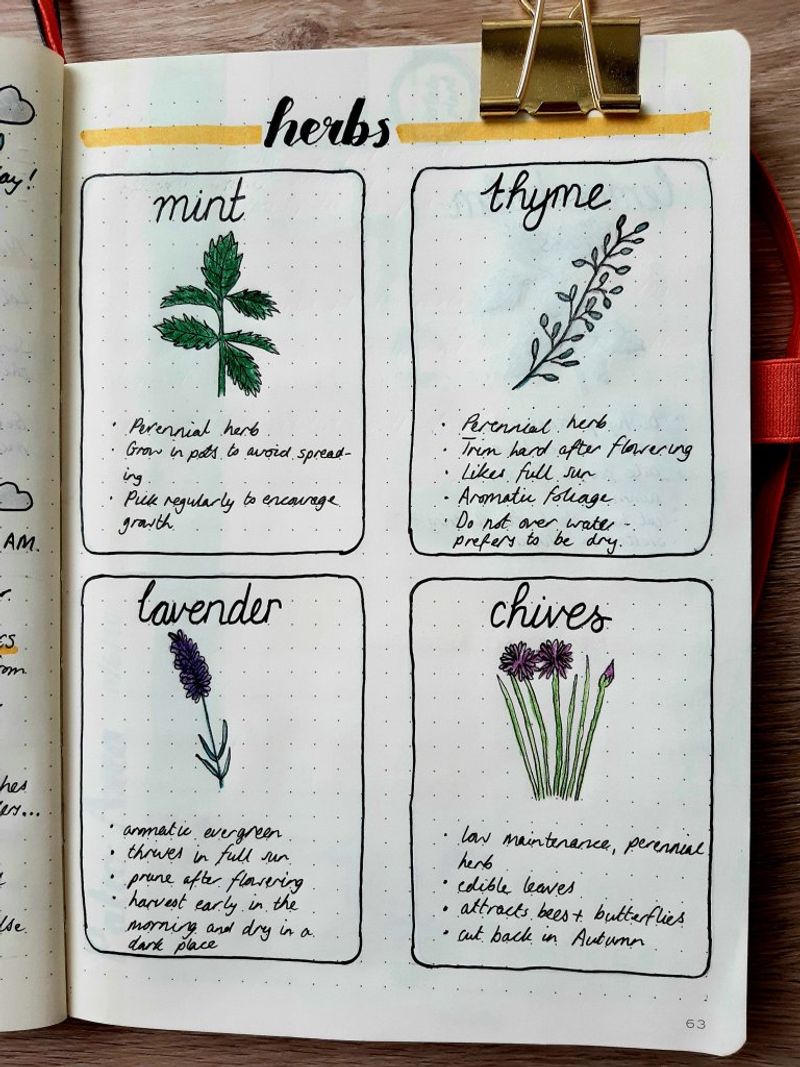 herbs
mint
• Perennial herb
• Grow in pots to avoid spread-
ing
• Pick regularly to encourage
growth
thyme
• Perennial herb
• Trim hard after flowering
• Likes full sun
• Aromatic foliage
• Do not over water -
prefers to be dry.
lavender
• aromatic evergreen
• thrives in full sun
• prune after flowering
• harvest early in the
morning and dry in a
dark place
chives
• low maintenance, perennial
herb
• edible leaves
• attracts bees + butterflies
• cut back in Autumn
63
ay!
AM.